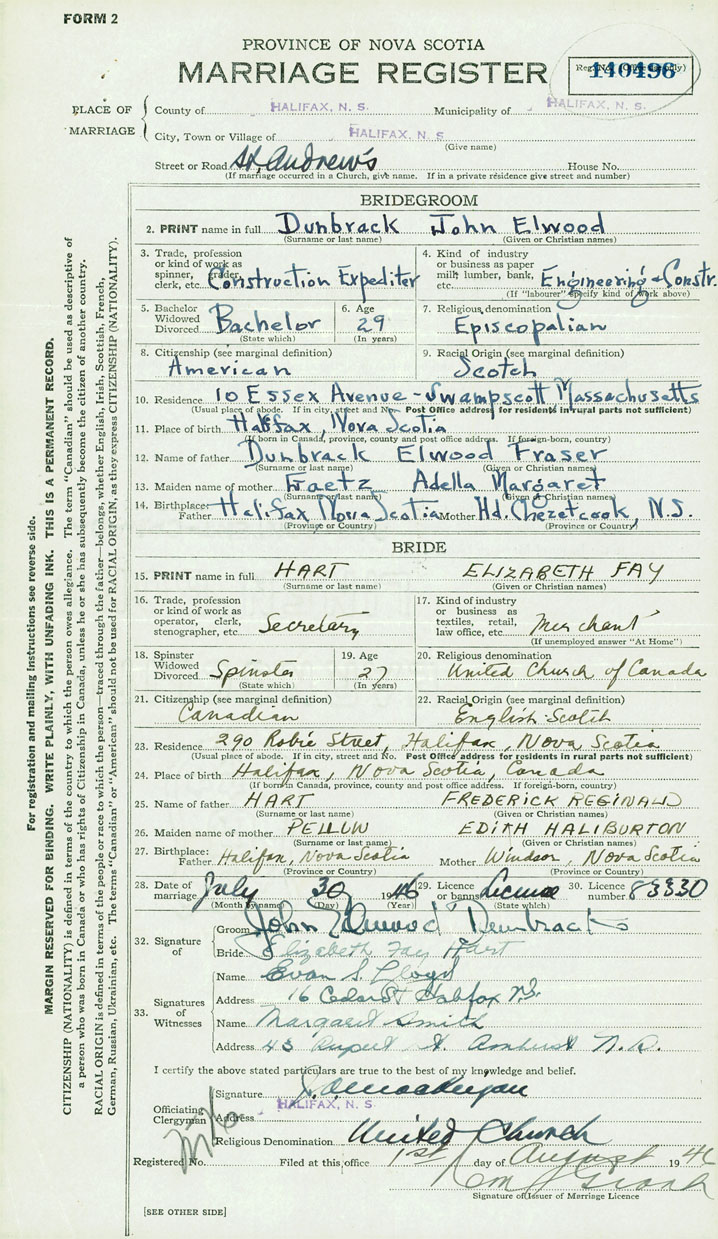 FORM 2
PROVINCE OF NOVA SCOTIA
MARRIAGE REGISTER
140496
PLACE OF MARRIAGE
County of HALIFAX, N. S. Municipality of HALIFAX, N. S.
City, Town or Village of HALIFAX, N. S.
(Give name)
Street or Road St. Andrew's House No.
(If marriage occurred in a Church, give name. If in a private residence give street and number)
BRIDEGROOM
2. PRINT name in full Dunbrack John Elwood
(Surname or last name) (Given or Christian names)
3. Trade, profession or kind of work as spinner, trader, clerk, etc. Construction Expediter
4. Kind of industry or business as paper mill, lumber, bank, etc. Engineering & Constr.
(If "labourer" specify kind of work above)
5. Bachelor Widowed Divorced Bachelor
(State which)
6. Age 29
(In years)
7. Religious denomination Episcopalian
8. Citizenship (see marginal definition) American
9. Racial Origin (see marginal definition) Scotch
10. Residence 10 Essex Avenue - Swampscott Massachusetts
(Usual place of abode. If in city, street and No. Post Office address for residents in rural parts not sufficient)
11. Place of birth Halifax, Nova Scotia
(If born in Canada, province, county and post office address. If foreign-born, country)
12. Name of father Dunbrack Elwood Fraser
(Surname or last name) (Given or Christian names)
13. Maiden name of mother Gaetz Adella Margaret
(Surname or last name) (Given or Christian names)
14. Birthplace: Father Halifax Nova Scotia Mother Hd. Chezetcook, N.S.
(Province or Country) (Province or Country)
BRIDE
15. PRINT name in full HART ELIZABETH FAY
(Surname or last name) (Given or Christian names)
16. Trade, profession or kind of work as operator, clerk, stenographer, etc. Secretary
17. Kind of industry or business as textiles, retail, law office, etc. Merchant
(If unemployed answer "At Home")
18. Spinster Widowed Divorced Spinster
(State which)
19. Age 27
(In years)
20. Religious denomination United Church of Canada
21. Citizenship (see marginal definition) Canadian
22. Racial Origin (see marginal definition) English Scotch
23. Residence 290 Robie Street, Halifax, Nova Scotia
(Usual place of abode. If in city, street and No. Post Office address for residents in rural parts not sufficient)
24. Place of birth Halifax, Nova Scotia, Canada
(If born in Canada, province, county and post office address. If foreign-born, country)
25. Name of father HART FREDERICK REGINALD
(Surname or last name) (Given or Christian names)
26. Maiden name of mother PELLOW EDITH HALIBURTON
(Surname or last name) (Given or Christian names)
27. Birthplace: Father Halifax, Nova Scotia Mother Windsor, Nova Scotia
(Province or Country) (Province or Country)
28. Date of marriage July 30 1946 29. Licence or banns License 30. Licence number 83330
(Month by name) (Day) (Year) (State which)
32. Signature of
Groom John Elwood Dunbrack
Bride Elizabeth Fay Hart
33. Signatures of Witnesses
Name Evan S. Lloyd
Address 16 Cedar St Halifax N.S.
Name Margaret Smith
Address 43 Rupert St. Amherst N.S.
I certify the above stated particulars are true to the best of my knowledge and belief.
Officiating Clergyman
Signature
Address HALIFAX, N. S.
Religious Denomination United Church
Registered No. Filed at this office 1st day of August 1946
Signature of Issuer of Marriage Licence
[SEE OTHER SIDE]
For registration and mailing instructions see reverse side.
MARGIN RESERVED FOR BINDING. WRITE PLAINLY, WITH UNFADING INK. THIS IS A PERMANENT RECORD.
CITIZENSHIP (NATIONALITY) is defined in terms of the country to which the person owes allegiance. The term "Canadian" should be used as descriptive of
a person who was born in Canada or who has rights of Citizenship in Canada, unless he or she has subsequently become the citizen of another country.
RACIAL ORIGIN is defined in terms of the people or race to which the person—traced through the father—belongs, whether English, Irish, Scottish, French,
German, Russian, Ukrainian, etc. The terms "Canadian" or "American" should not be used for RACIAL ORIGIN, as they express CITIZENSHIP (NATIONALITY).